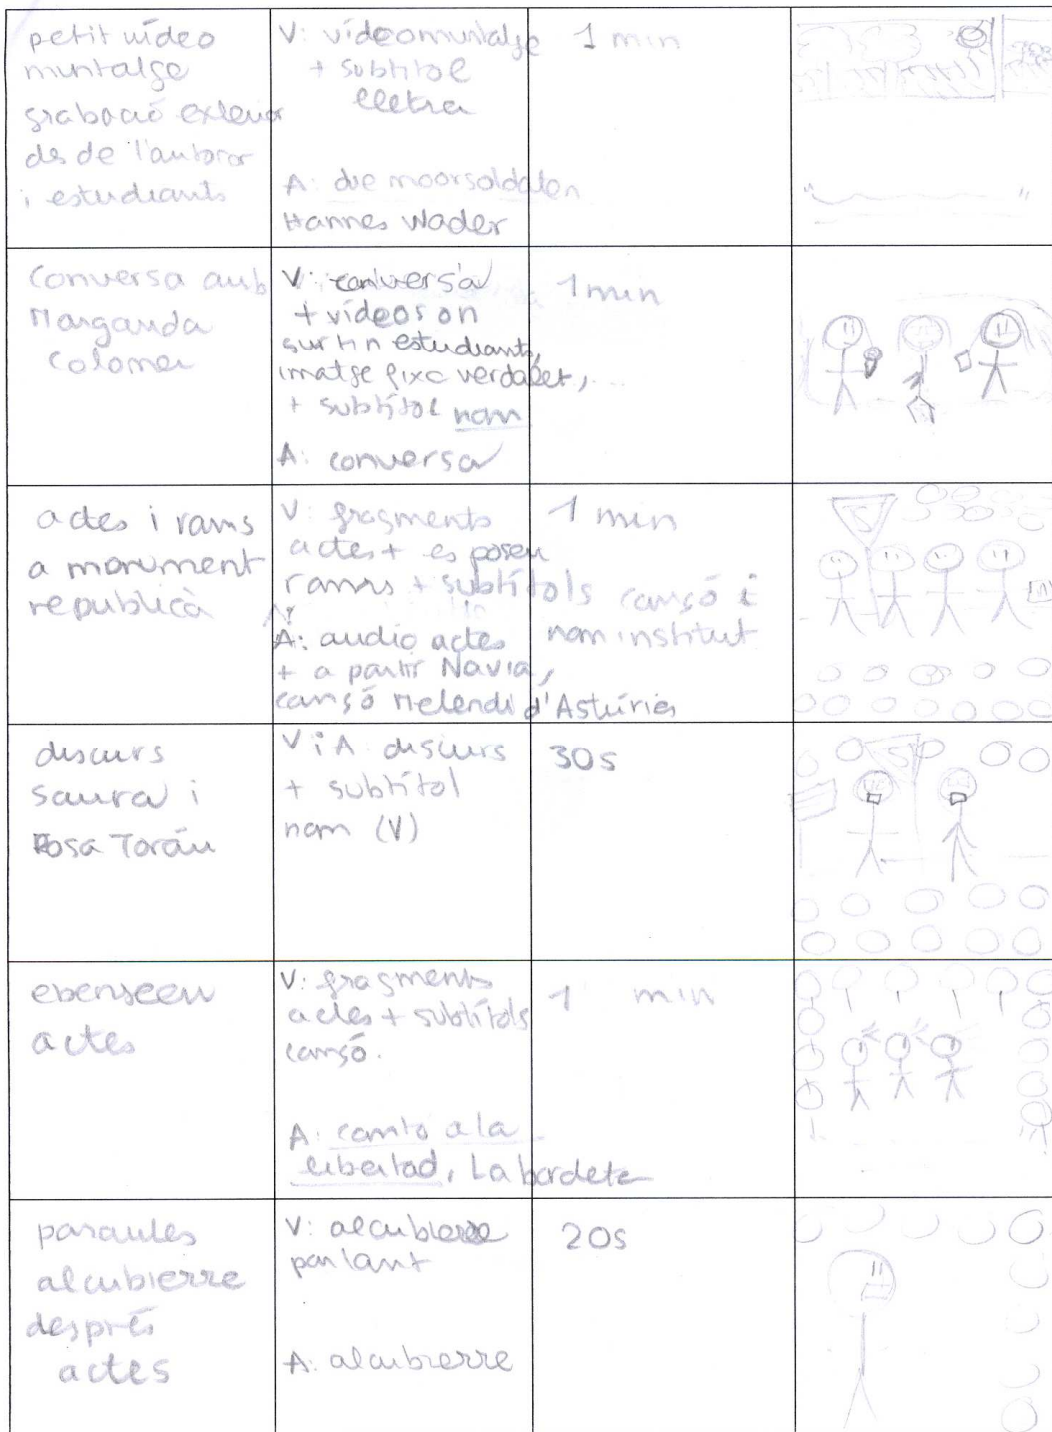 petit vídeo
muntatge
grabació exterior
des de l'autocar
i estudiants
V: vídeomuntatge
+ subtítol
lletra
A: die moorsoldaten
Hannes Wader
1 min
conversa amb
Margarida
Colomer
V: conversa
+ vídeos on
surtin estudiants,
imatge fixa verdalet, ...
+ subtítol nom
A: conversa
1 min
actes i rams
a monument
republicà
V: fragments
actes + es posen
rams + subtítols cançó i
nom institut
A: audio actes
+ a partir Navia,
cançó Melendi d'Astúries
1 min
discurs
saura i
Rosa Torán
V i A: discurs
+ subtítol
nom (V)
30s
ebenseen
actes
V: fragments
actes + subtítols
cançó.
A: canto a la
libertad, Labordeta
1 min
paraules
alcubierre
després
actes
V: alcubierre
parlant
A: alcubierre
20s